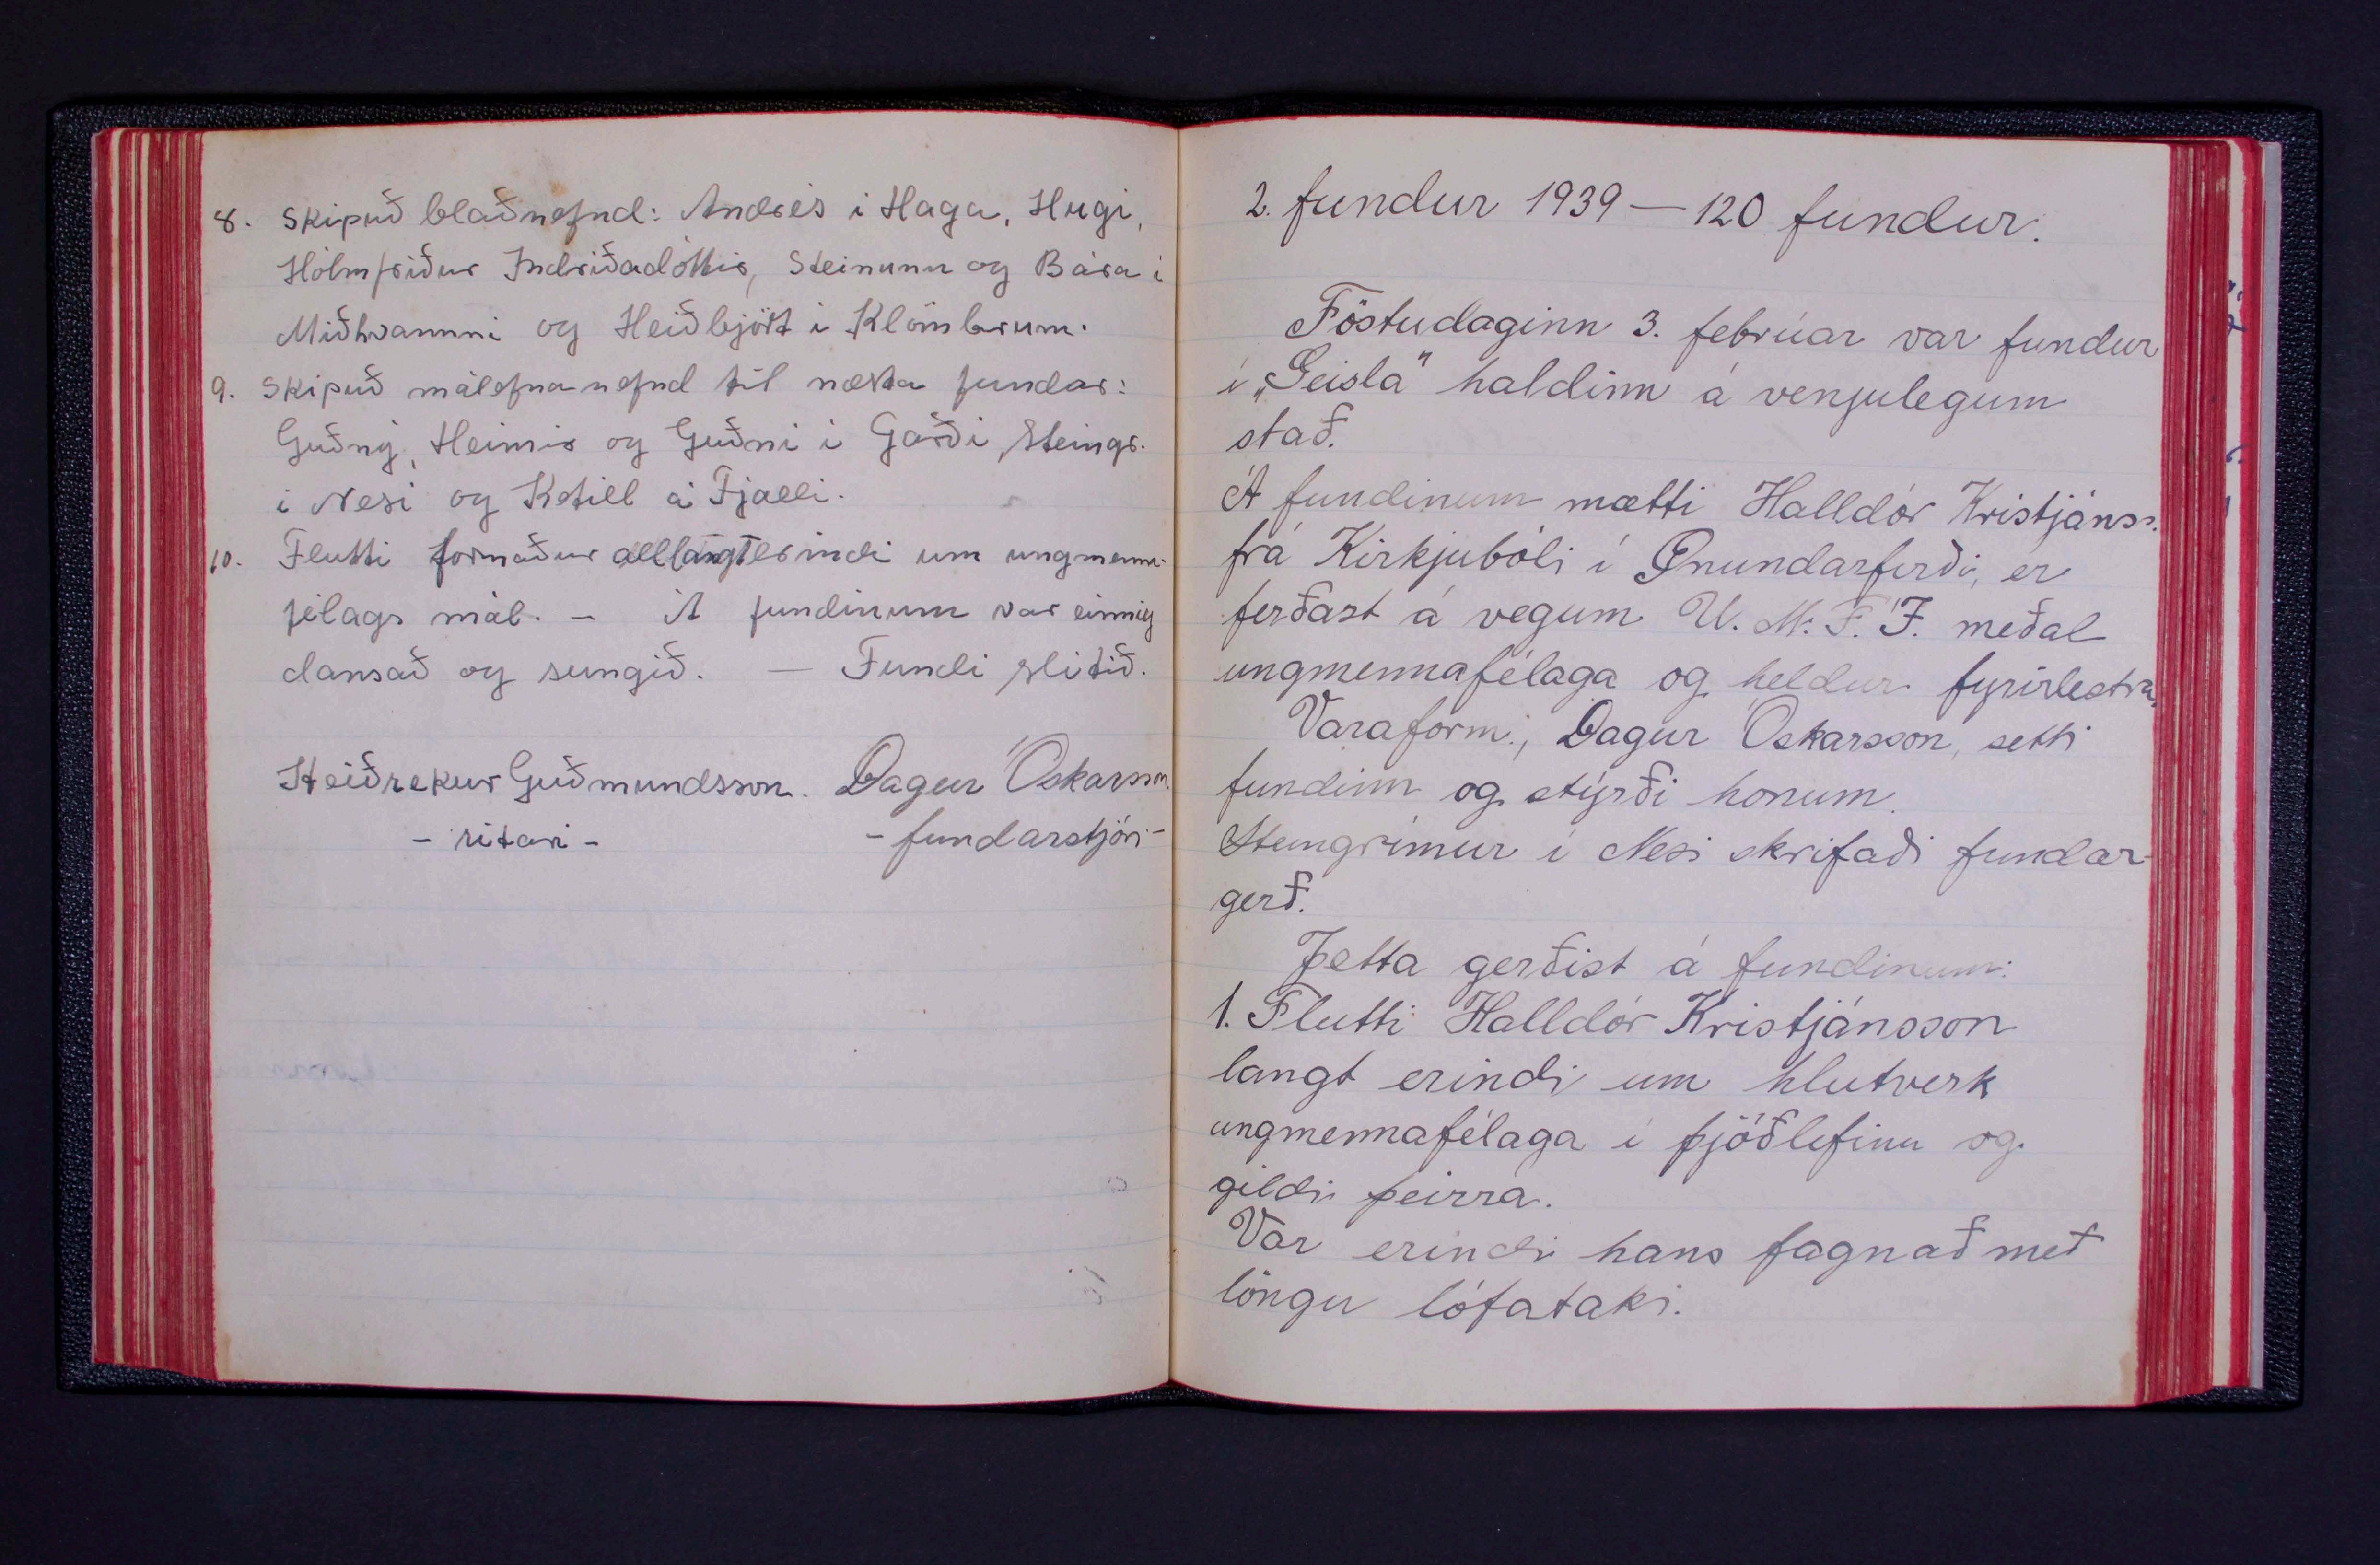 8. Skipuð blaðnefnd: Andrés i Haga, Hugi,
Hólmfriður Indriðadóttir, Steinunn og Bára i
Miðhvammi og Heiðbjört i Klömbrum.
9. Skipuð málefnanefnd til næsta fundar:
Guðný, Heimir og Guðni i Garði, Steingr.
i Nesi og Ketill á Fjalli.
10. Flutti formaður alllangt erindi um ungmenna-
félags mál. - Á fundinum var einnig
dansað og sungið. — Fundi slitið.
Heiðrekur Guðmundsson. Dagur Óskarsson.
- ritari - - fundarstjóri -
2. fundur 1939 — 120 fundur.
Föstudaginn 3. febrúar var fundur
í „Geisla" haldinn á venjulegum
stað.
Á fundinum mætti Halldór Kristjánss.
frá Kirkjubóli í Önundarfirði, er
ferðast á vegum U. M. F. Í. meðal
ungmennafélaga og heldur fyrirlestra.
Varaform., Dagur Óskarsson, setti
fundinn og stýrði honum.
Steingrímur í Nesi skrifaði fundar-
gerð.
Þetta gerðist á fundinum:
1. Flutti Halldór Kristjánsson
langt erindi um hlutverk
ungmennafélaga í þjóðlífinu og
gildi þeirra.
Var erindi hans fagnað með
löngu lófataki.